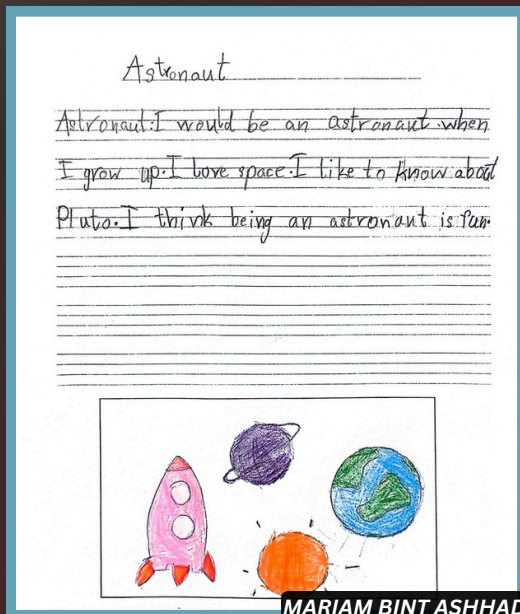 Astronaut
Astronaut:I would be an astronaut when
I grow up.I love space.I like to know about
Pluto.I think being an astronant is fun.
MARIAM BINT ASHHAD